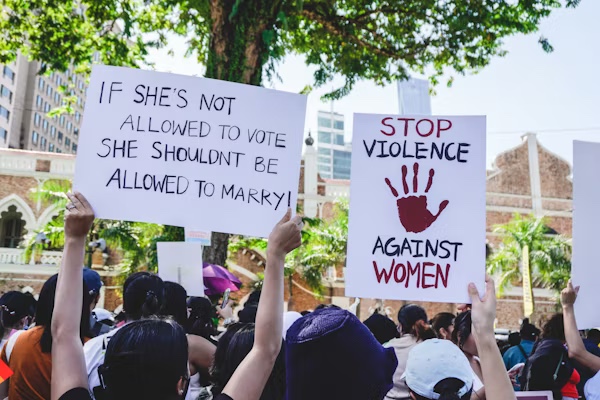 IF SHE'S NOT
ALLOWED TO VOTE
SHE SHOULDNT BE
ALLOWED TO MARRY!
STOP
VIOLENCE
AGAINST
WOMEN